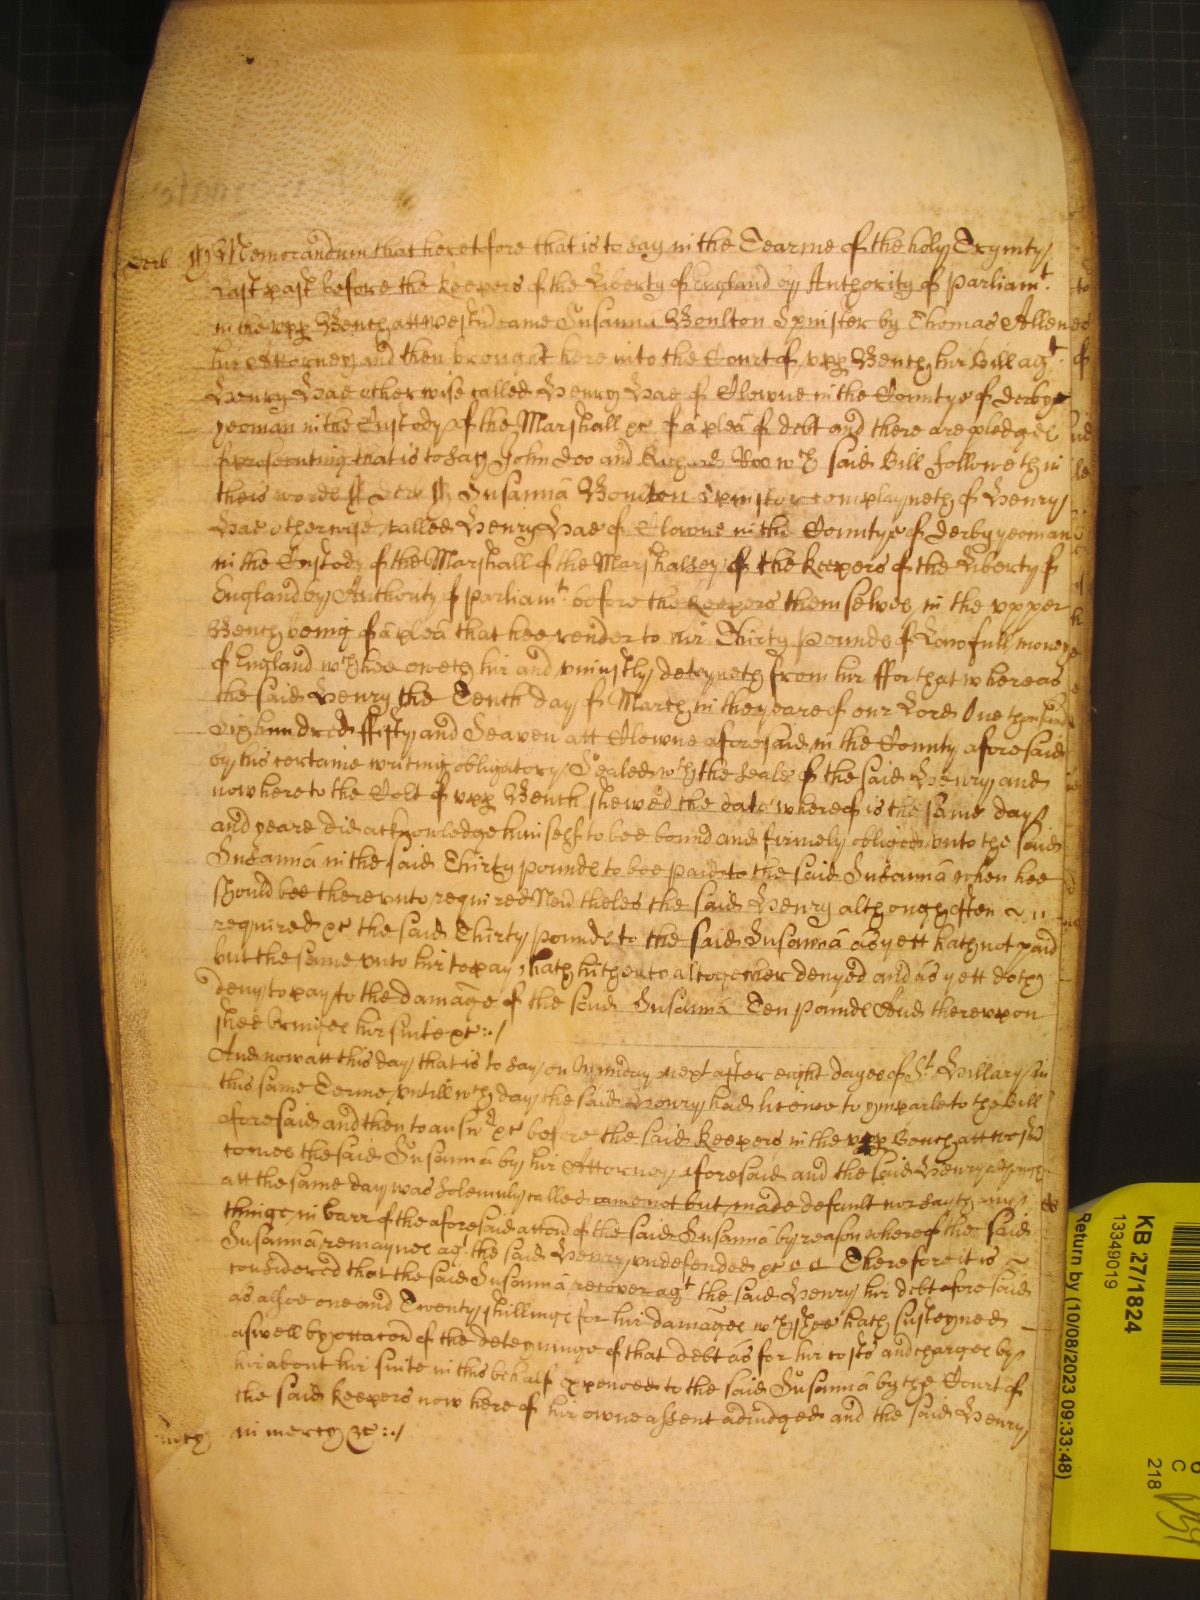 Derb ss Memorandum that heretofore that is to say in the Tearme of the holy Trynity
last past before the keepers of the Liberty of England by Authority of Parliamt.
in the upp Bench att westmr came Susanna Boulton Spinster by Thomas Allen
hir Attorney and then brought here into the Court of upp Bench hir Bill agt.
Henry Hae otherwise called Henry Hae of Clowne in the Countye of derbye
yeoman in the Custody of the Marshall &c of a plea of debt and there are pledges
of prosecuting that is to say John doo and Richard Roo wch said Bill followeth in
theis words ss Derb ss Susanna Boulton Spinster complayneth of Henry
Hae otherwise called Henry Hae of Clowne in the Countye of derby yeoman
in the Custody of the Marshall of the Marshalsey of the keepers of the Liberty of
England by Authority of Parliamt. before the keepers themselves in the upper
Bench being of a plea that hee render to hir Thirty pounds of Lawfull money
of England wch hee oweth hir and uniustly deteyneth from hir ffor that whereas
the said Henry the Tenth day of March in the yeare of our Lord One thousand
six hundred ffifty and Seaven att Clowne aforesaid in the County aforesaid
by his certaine writing obligatory Sealed wth the Seale of the said Henry and
now here to the Cort of upp Bench shewed the date whereof is the same day
and yeare did acknowledge himself to bee bound and firmely obliged unto the said
Susanna in the said Thirty pounds to bee paid to the said Susanna when hee
should bee thereunto required Nevertheles the said Henry although often
required &c the said Thirty pounds to the said Susanna as yett hath not paid
but the same unto hir to pay hath hitherto altogether denyed and as yett doth
deny to pay to the damage of the said Susanna Ten pounds And thereupon
shee bringes hir suite &c:./
And now att this day that is to say on Munday next after eight dayes of St. Hillary in
this same Terme, untill wch day the said Henry had licence to imparle to the Bill
aforesaid and then to answr &c before the said keepers in the upp Bench att westmr
comes the said Susanna by hir Attorney aforesaid and the said Henry although
att the same day was solemnly called came not but made default nor sayth any
thinge in barr of the aforesaid accon of the said Susanna by reason whereof the said
Susanna remaynes agt the said Henry undefended &c Therefore it is
considered that the said Susanna recover agt the said Henry hir debt aforesaid
as alsoe one and Twenty shillings for hir damages wch shee hath susteyned
aswell by occacon of the deteyninge of that debt as for hir costs and charges by
hir about hir suite in this behalf expended to the said Susanna by the Court of
the said keepers now here of hir owne assent adiudged and the said Henry
mercy in mercy &c:./
KB 27/1824
13349019
Return by (10/08/2023 09:33:48)
C
218